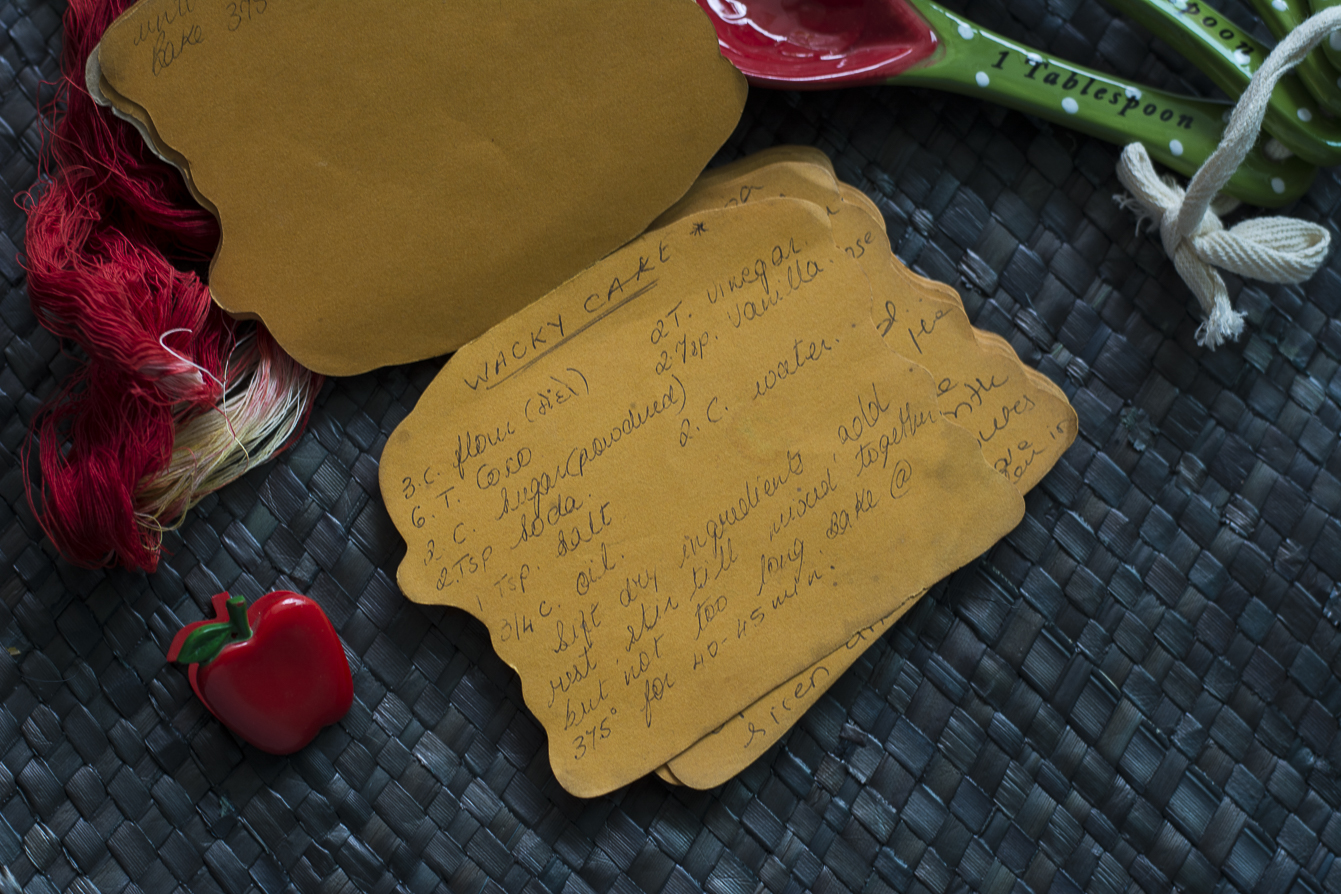 Bake 375
1 Tablespoon
spoon
WACKY CAKE *
3.C. flour (sift) 2T. vinegar.
6. T. Coco 2.Tsp. vanilla.
C. sugar (powdured)
2.TSP soda. 2. C. water.
1 TSP. salt
3/4 C. oil.
sift dry ingredients, add
rest stir till mixed together
but not too long. Bake @
375° for 40-45 min.